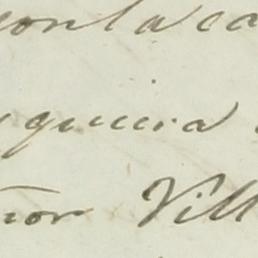 con la ca
quiera
ñor Vill